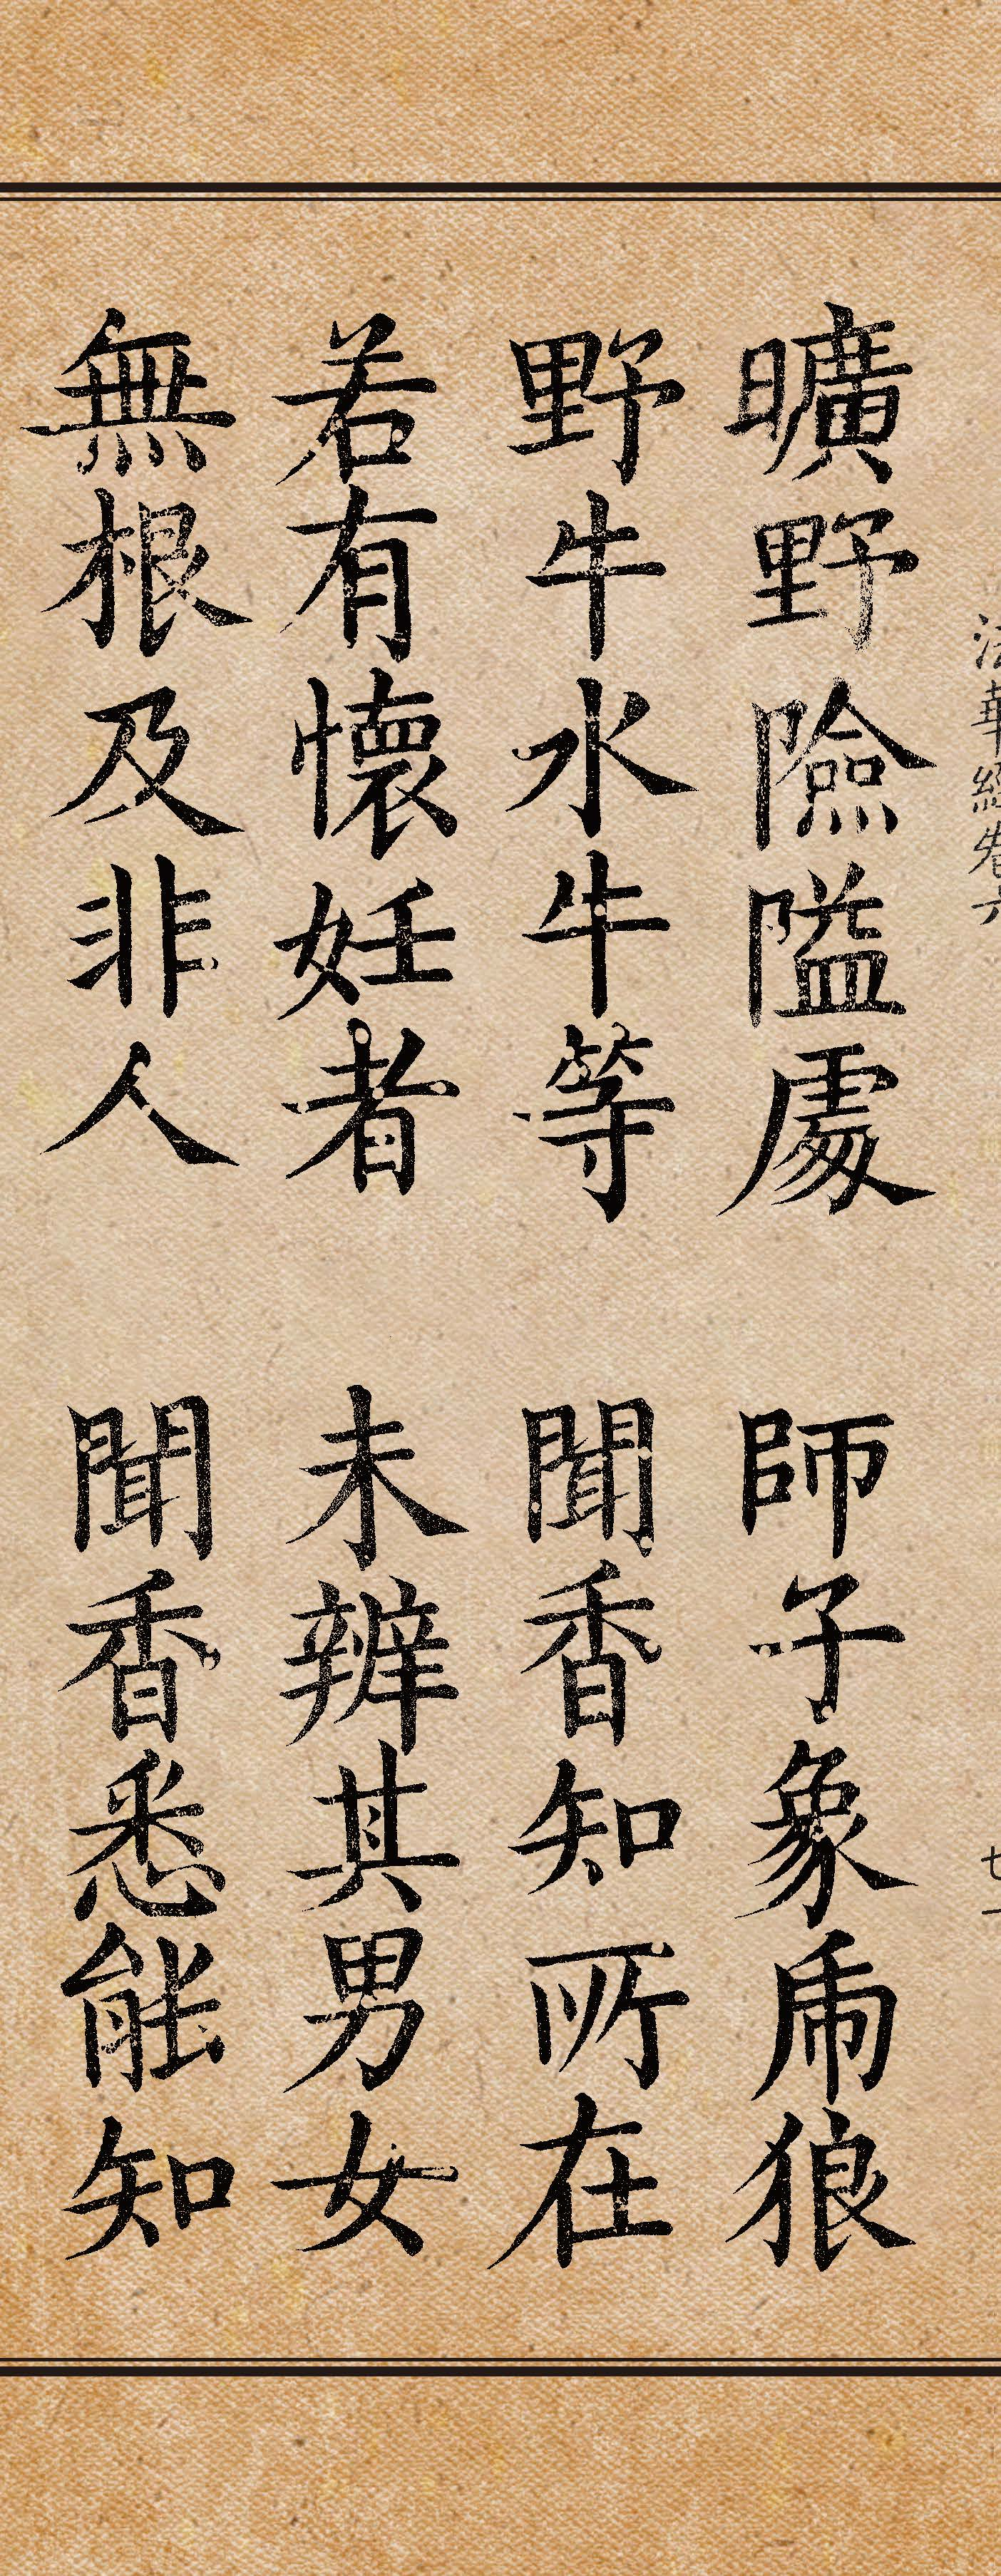 法華經卷六 廿一
曠野險隘處 師子象虎狼
野牛水牛等 聞香知所在
若有懷妊者 未辨其男女
無根及非人 聞香悉能知